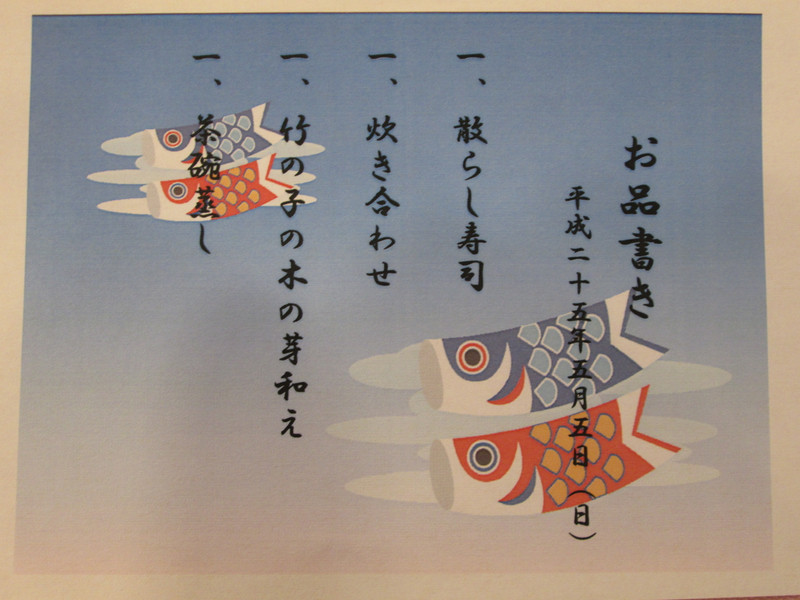 お品書き
平成二十五年五月五日（日）
一、散らし寿司
一、炊き合わせ
一、竹の子の木の芽和え
一、茶碗蒸し